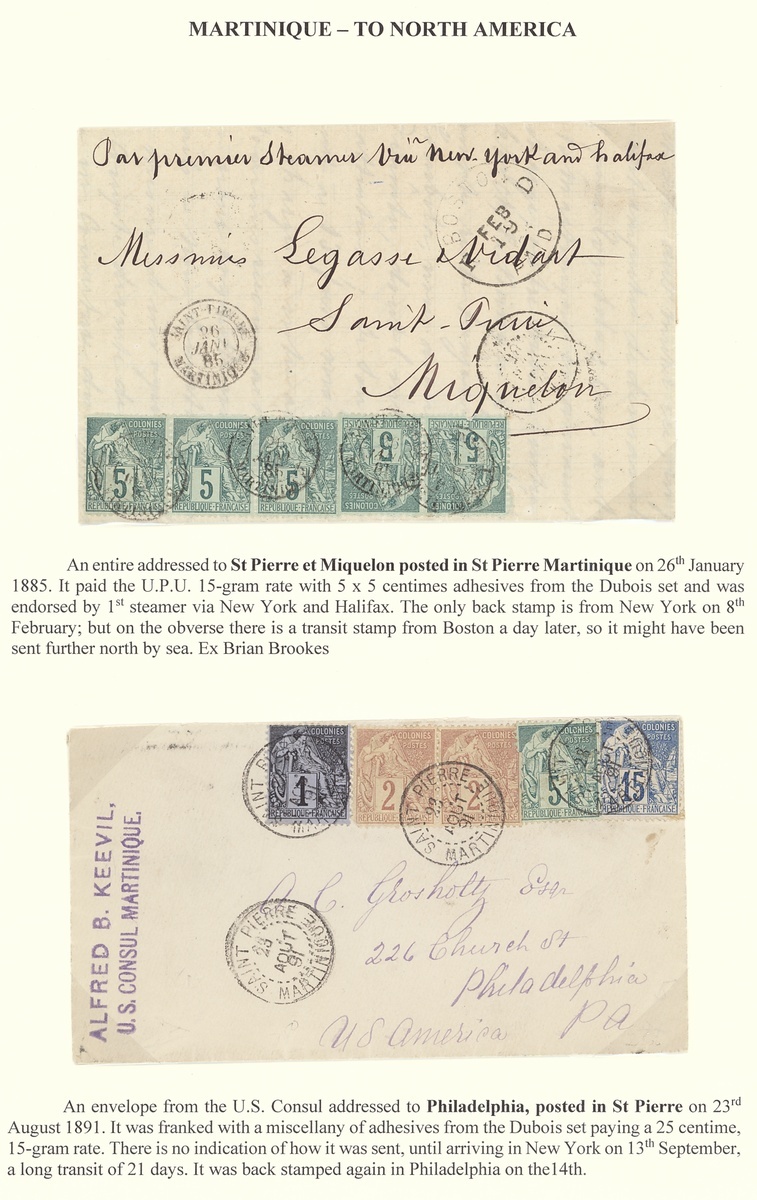 MARTINIQUE – TO NORTH AMERICA
Par premier Steamer Via New-York and halifax
BOSTON
FEB
PAID
Messrs Legasse & Vidart
Saint-Pierre
Miquelon
SAINT-PIERRE
26
JANV
85
MARTINIQUE
COLONIES
POSTES
5
REPUBLIQUE-FRANÇAISE
COLONIES
POSTES
5
REPUBLIQUE-FRANÇAISE
COLONIES
POSTES
5
REPUBLIQUE-FRANÇAISE
COLONIES
5
COLONIES
5
An entire addressed to St Pierre et Miquelon posted in St Pierre Martinique on 26th January
1885. It paid the U.P.U. 15-gram rate with 5 x 5 centimes adhesives from the Dubois set and was
endorsed by 1st steamer via New York and Halifax. The only back stamp is from New York on 8th
February; but on the obverse there is a transit stamp from Boston a day later, so it might have been
sent further north by sea. Ex Brian Brookes
COLONIES
POSTES
1
REPUBLIQUE-FRANÇAISE
COLONIES
POSTES
2
REPUBLIQUE-FRANÇAISE
COLONIES
POSTES
2
REPUBLIQUE-FRANÇAISE
COLONIES
POSTES
5
REPUBLIQUE-FRANÇAISE
COLONIES
POSTES
15
REPUBLIQUE-FRANÇAISE
SAINT PIERRE
23
AOUT
91
MARTINIQUE
ALFRED B. KEEVIL,
U.S. CONSUL MARTINIQUE.
A. C. Grosholtz Esqr
226 Church St
Philadelphia
PA
US America
SAINT PIERRE
23
AOUT
91
MARTINIQUE
An envelope from the U.S. Consul addressed to Philadelphia, posted in St Pierre on 23rd
August 1891. It was franked with a miscellany of adhesives from the Dubois set paying a 25 centime,
15-gram rate. There is no indication of how it was sent, until arriving in New York on 13th September,
a long transit of 21 days. It was back stamped again in Philadelphia on the14th.